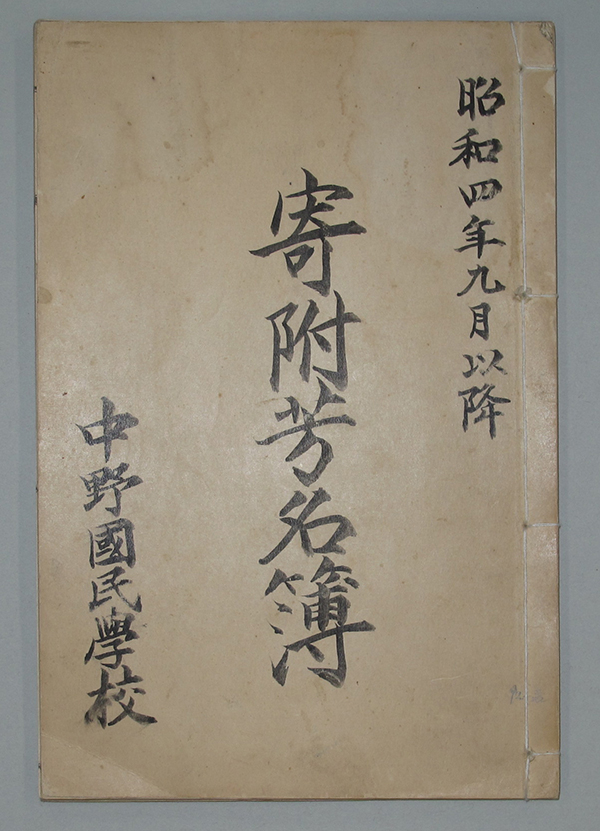 昭和四年九月以降
寄附芳名簿
中野國民學校